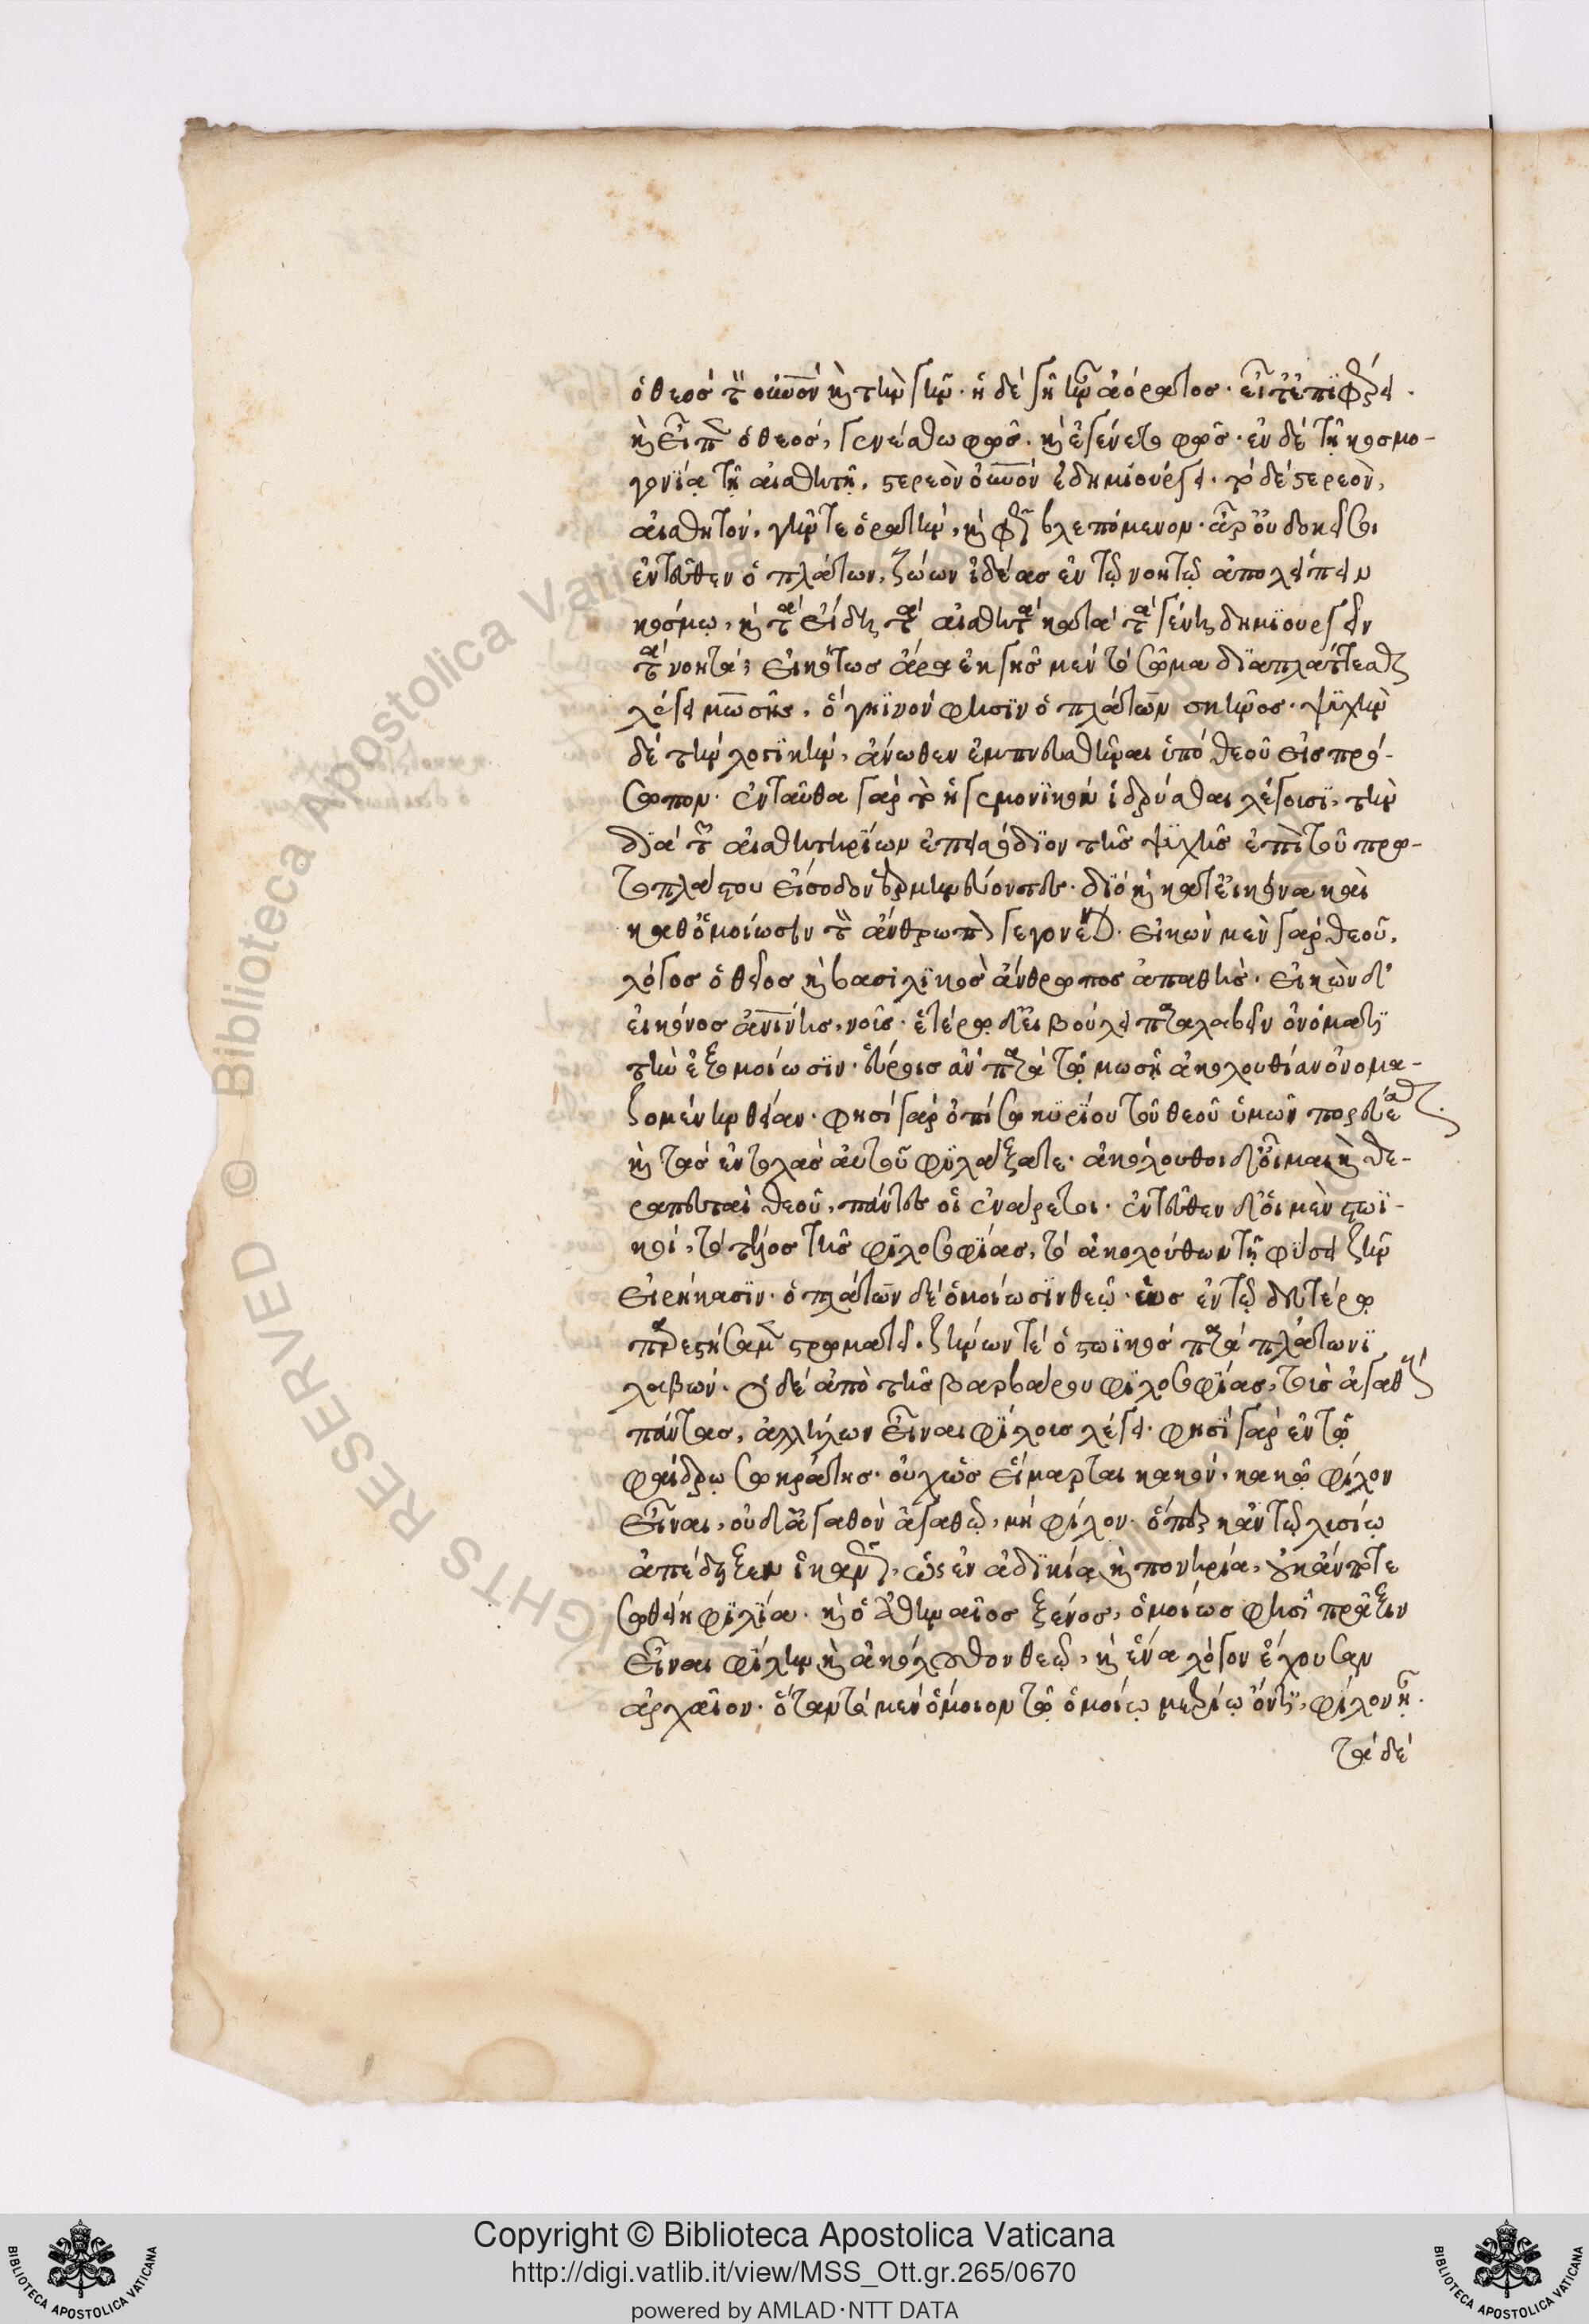 ὁ θεὸς τὸν οὐρανὸν καὶ τὴν γῆν· ἡ δὲ γῆ ἦν ἀόρατος· εἶτ' ἐπιφέρει·
καὶ εἶπεν ὁ θεός, γενέσθω φῶς. καὶ ἐγένετο φῶς· ἐν δὲ τῇ κοσμο-
γονίᾳ τῇ αἰσθητῇ, στερεὸν οὐρανὸν ἐδημιούργει· τὸ δὲ στερεὸν,
αἰσθητόν, γῆν τε ὁρατὴν, καὶ φῶς βλεπόμενον· ἆρ' οὐ δοκεῖ σοι
ἐντεῦθεν ὁ πλάτων, ζώων ἰδέας ἐν τῷ νοητῷ ἀπολείπειν
κόσμῳ, καὶ τὰ εἴδη τὰ αἰσθητὰ κατὰ τὰ γένη δημιουργεῖν
τὰ νοητά; εἰκότως ἄρα ἐκ γῆς μὲν τὸ σῶμα διαπλάττεσθαι
λέγει μωσῆς, ὃ γήϊνόν φησιν ὁ πλάτων σκῆνος· ψυχὴν
δὲ τὴν λογικὴν, ἄνωθεν ἐμπνευσθῆναι ὑπὸ θεοῦ εἰς πρό-
σωπον· ἐνταῦθα γὰρ τὸ ἡγεμονικὸν ἱδρύσθαι λέγουσι, τὴν
διὰ τῶν αἰσθητηρίων ἐπεισόδιον τῆς ψυχῆς ἐπὶ τοῦ πρω-
τοπλάστου εἴσοδον ἑρμηνεύοντες· διὸ καὶ κατ' εἰκόνα καὶ
καθ' ὁμοίωσιν τὸν ἄνθρωπον γεγονέναι· εἰκὼν μὲν γὰρ θεοῦ,
λόγος ὁ θεῖος καὶ βασιλικὸς ἄνθρωπος ἀπαθής· εἰκὼν δ'
εἰκόνος ἀνθρώπινος, νοῦς· ἑτέρῳ δ' εἰ βούλει παραλαβεῖν ὀνόματι
τὴν ἐξομοίωσιν· εὕροις ἂν παρὰ τῷ μωσῇ ἀκολουθίαν ὀνομα-
ζομένην θείαν· φησὶ γὰρ ὀπίσω κυρίου τοῦ θεοῦ ὑμῶν πορεύεσθαι
καὶ τὰς ἐντολὰς αὐτοῦ φυλάξατε· ἀκόλουθοι δ' οἶμαι καὶ θε-
ραπευταὶ θεοῦ, πάντες οἱ ἐνάρετοι· ἐντεῦθεν δ' οἱ μὲν στωϊ-
κοί, τὸ τέλος τῆς φιλοσοφίας, τὸ ἀκολούθως τῇ φύσει ζῆν
εἰρήκασιν· ὁ πλάτων δὲ ὁμοίωσιν θεῷ· ὡς ἐν τῷ δευτέρῳ
παρεστήσαμεν στρωματεῖ· ζήνων τε ὁ στωϊκὸς παρὰ πλάτωνι
λαβών· ὁ δὲ ἀπὸ τῆς βαρβάρου φιλοσοφίας, τοὺς ἀγαθοὺς
πάντας, ἀλλήλων εἶναι φίλους λέγει· φησὶ γὰρ ἐν τῷ
φαίδρῳ σωκράτης· οὐχ ὡς εἵμαρται κακόν, κακῷ φίλον
εἶναι, οὐδ' ἀγαθὸν ἀγαθῷ, μὴ φίλον· ὅπερ κἀν τῷ λυσίῳ
ἀπέδειξεν ἱκανῶς, ὡς ἐν ἀδικίᾳ καὶ πονηρίᾳ, οὐκ ἄν ποτε
σωθείη φιλία· καὶ ὁ ἀθηναῖος ξένος, ὁμοίως φησὶ πρᾶξιν
εἶναι φίλην καὶ ἀκόλουθον θεῷ, καὶ ἕνα λόγον ἔχουσαν
ἀρχαῖον· ὅταν τὸ μὲν ὅμοιον τῷ ὁμοίῳ μετρίῳ ὄντι, φίλον ᾖ·
τὰ δὲ
Copyright © Biblioteca Apostolica Vaticana
http://digi.vatlib.it/view/MSS_Ott.gr.265/0670
powered by AMLAD·NTT DATA